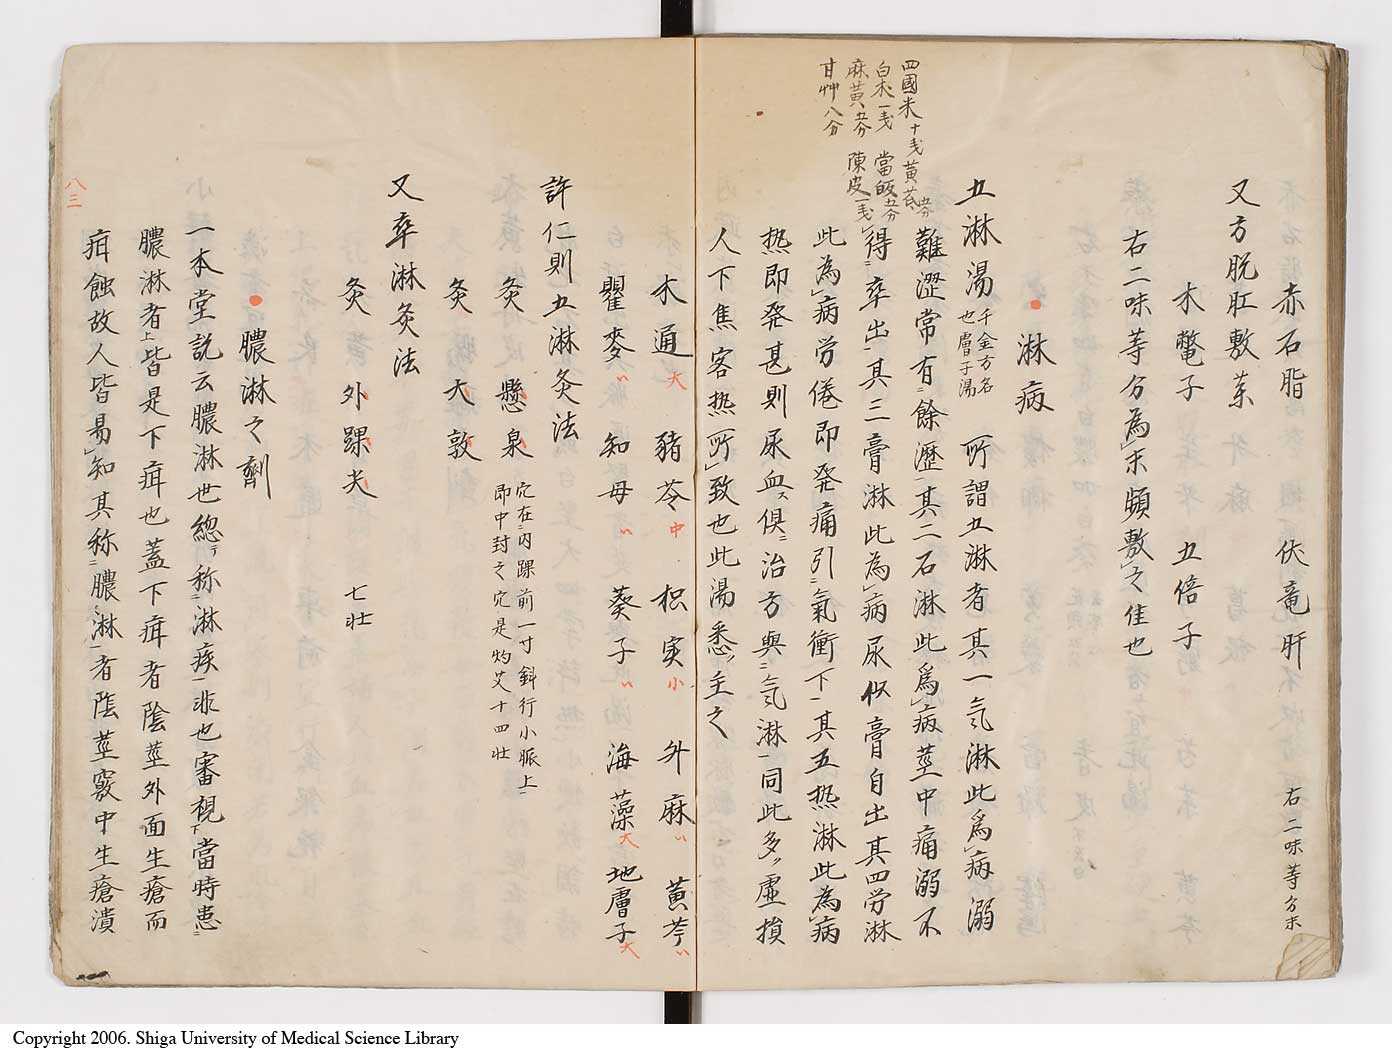 四國米十戋黄芪五分
白朮一戋 當皈五分
麻黄五分 陳皮一戋
甘艸八分
赤石脂 伏竜肝 右二味等分末
又方脱肛敷薬
木鼈子 五倍子
右二味等分為末頻敷之佳也
淋病
五淋湯 千金方名也膚子湯 所謂五淋者其一氣淋此爲病溺
難澀常有餘瀝其二石淋此爲病茎中痛溺不
得卒出其三膏淋此為病尿似膏自出其四労淋
此為病労倦即発痛引氣衝下其五热淋此為病
热即発甚則尿血又俱治方與气淋同此多虚損
人下焦客热所致也此湯悉主之
木通大 豬苓中 枳実小 升麻〃 黄芩〃
瞿麥〃 知母〃 葵子〃 海藻大 地膚子大
許仁則五淋灸法
灸 懸泉 穴在内踝前一寸斜行小脈上
即中封之穴是灼艾十四壮
灸 大敦
又卒淋灸法
灸 外踝尖 七壮
膿淋之劑
一本堂説云膿淋世総称淋疾非也審視當時患
膿淋者皆是下疳也蓋下疳者陰莖外面生瘡而
疳蝕故人皆易知其称膿淋者陰莖竅中生瘡潰
八三
Copyright 2006. Shiga University of Medical Science Library